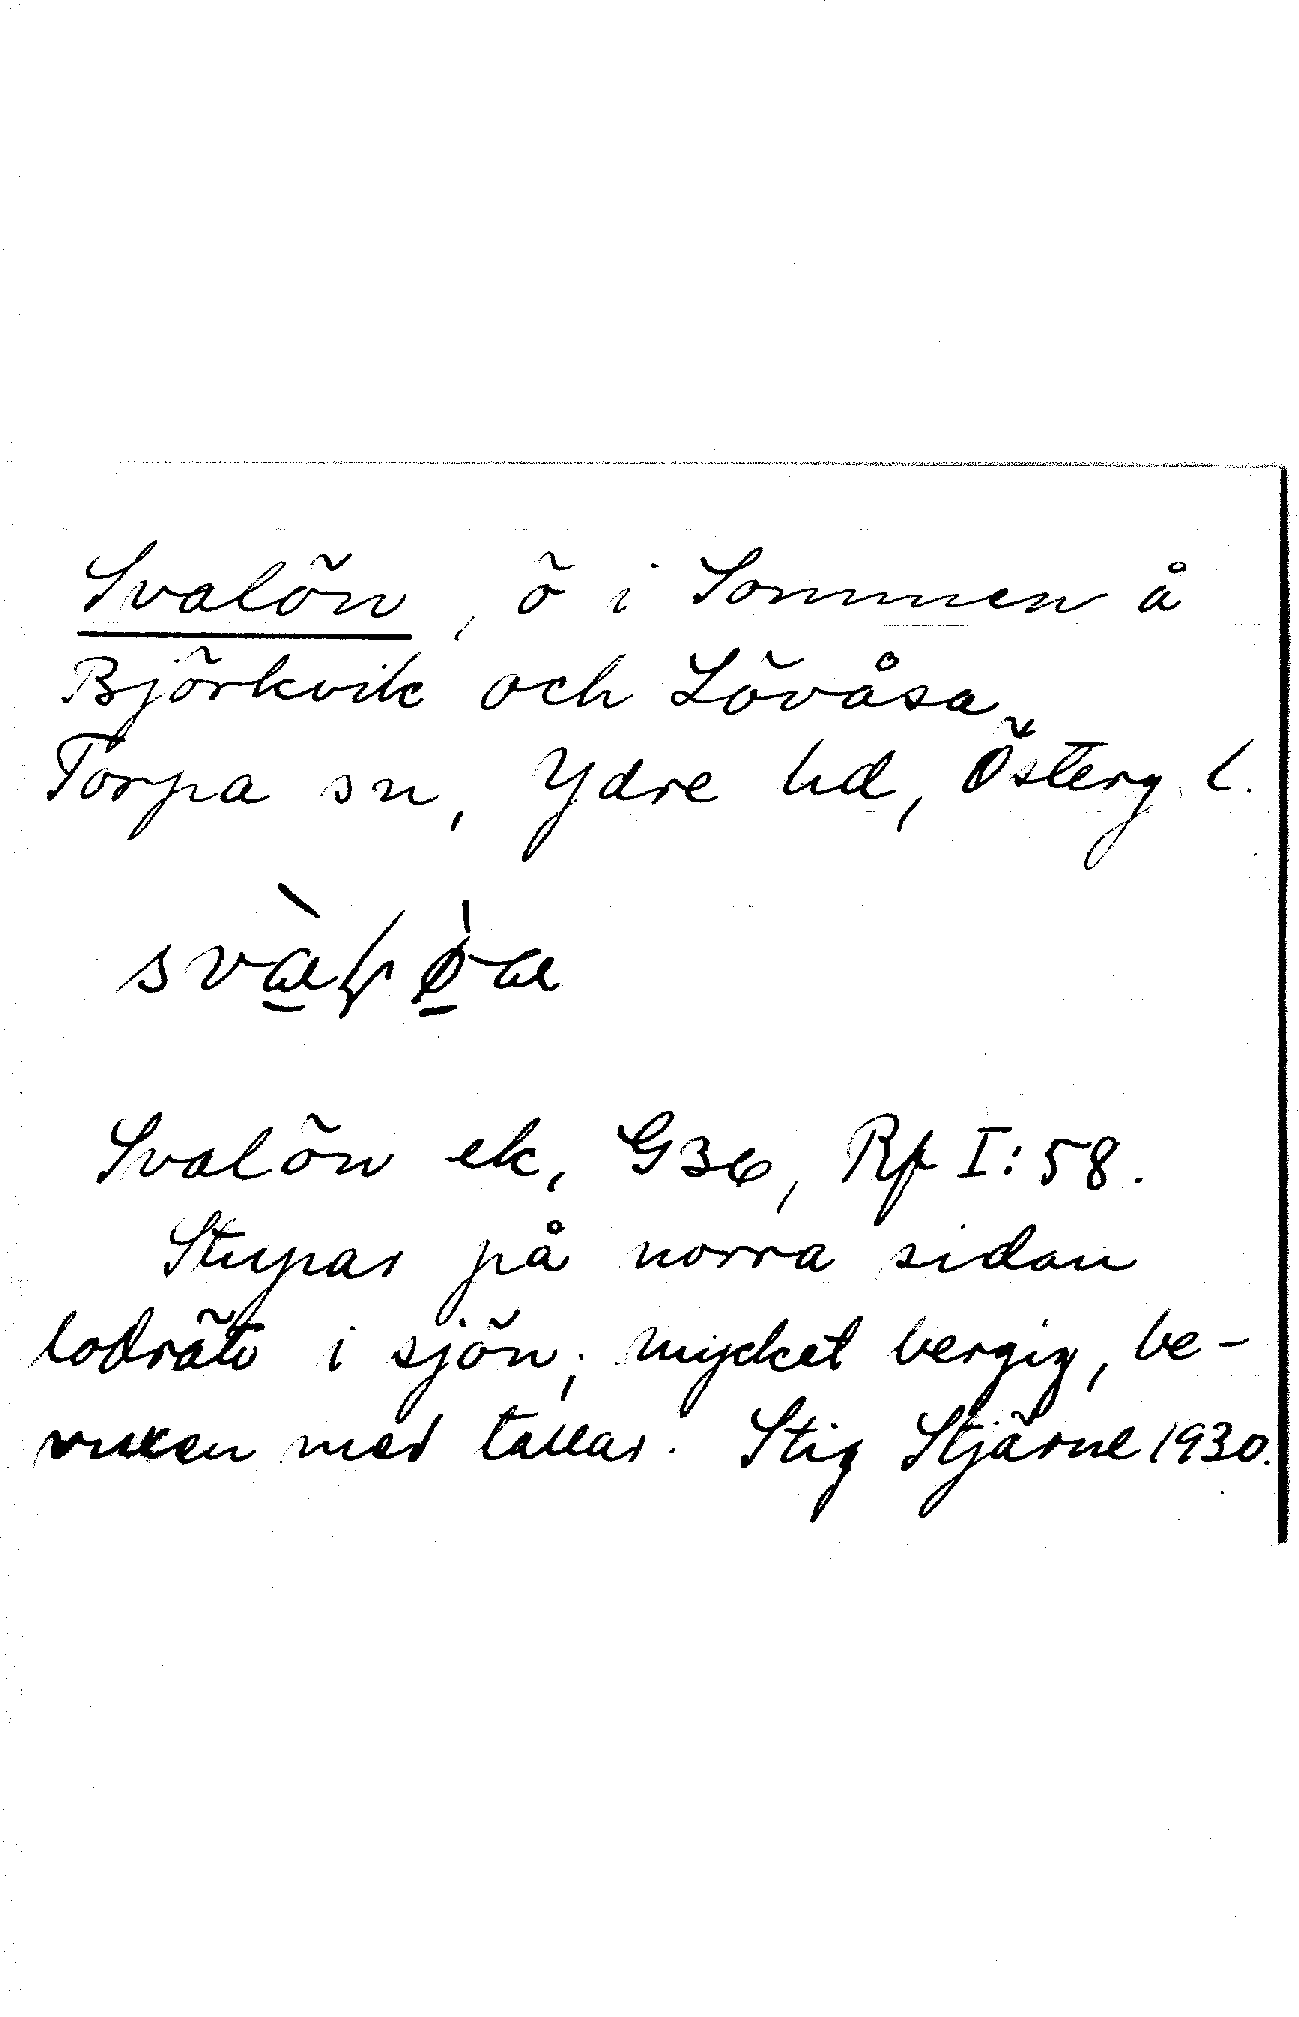 Svalön, ö i Sommen å
Björkvik och Lövåsa
Torpa sn, Ydre hd, Österg. l.
Svalön ek, G36, Rf I:58.
Stupar på norra sidan
lodrätt i sjön; mycket bergig, be-
vuxen med tallar. Stig Stjärne 1930.